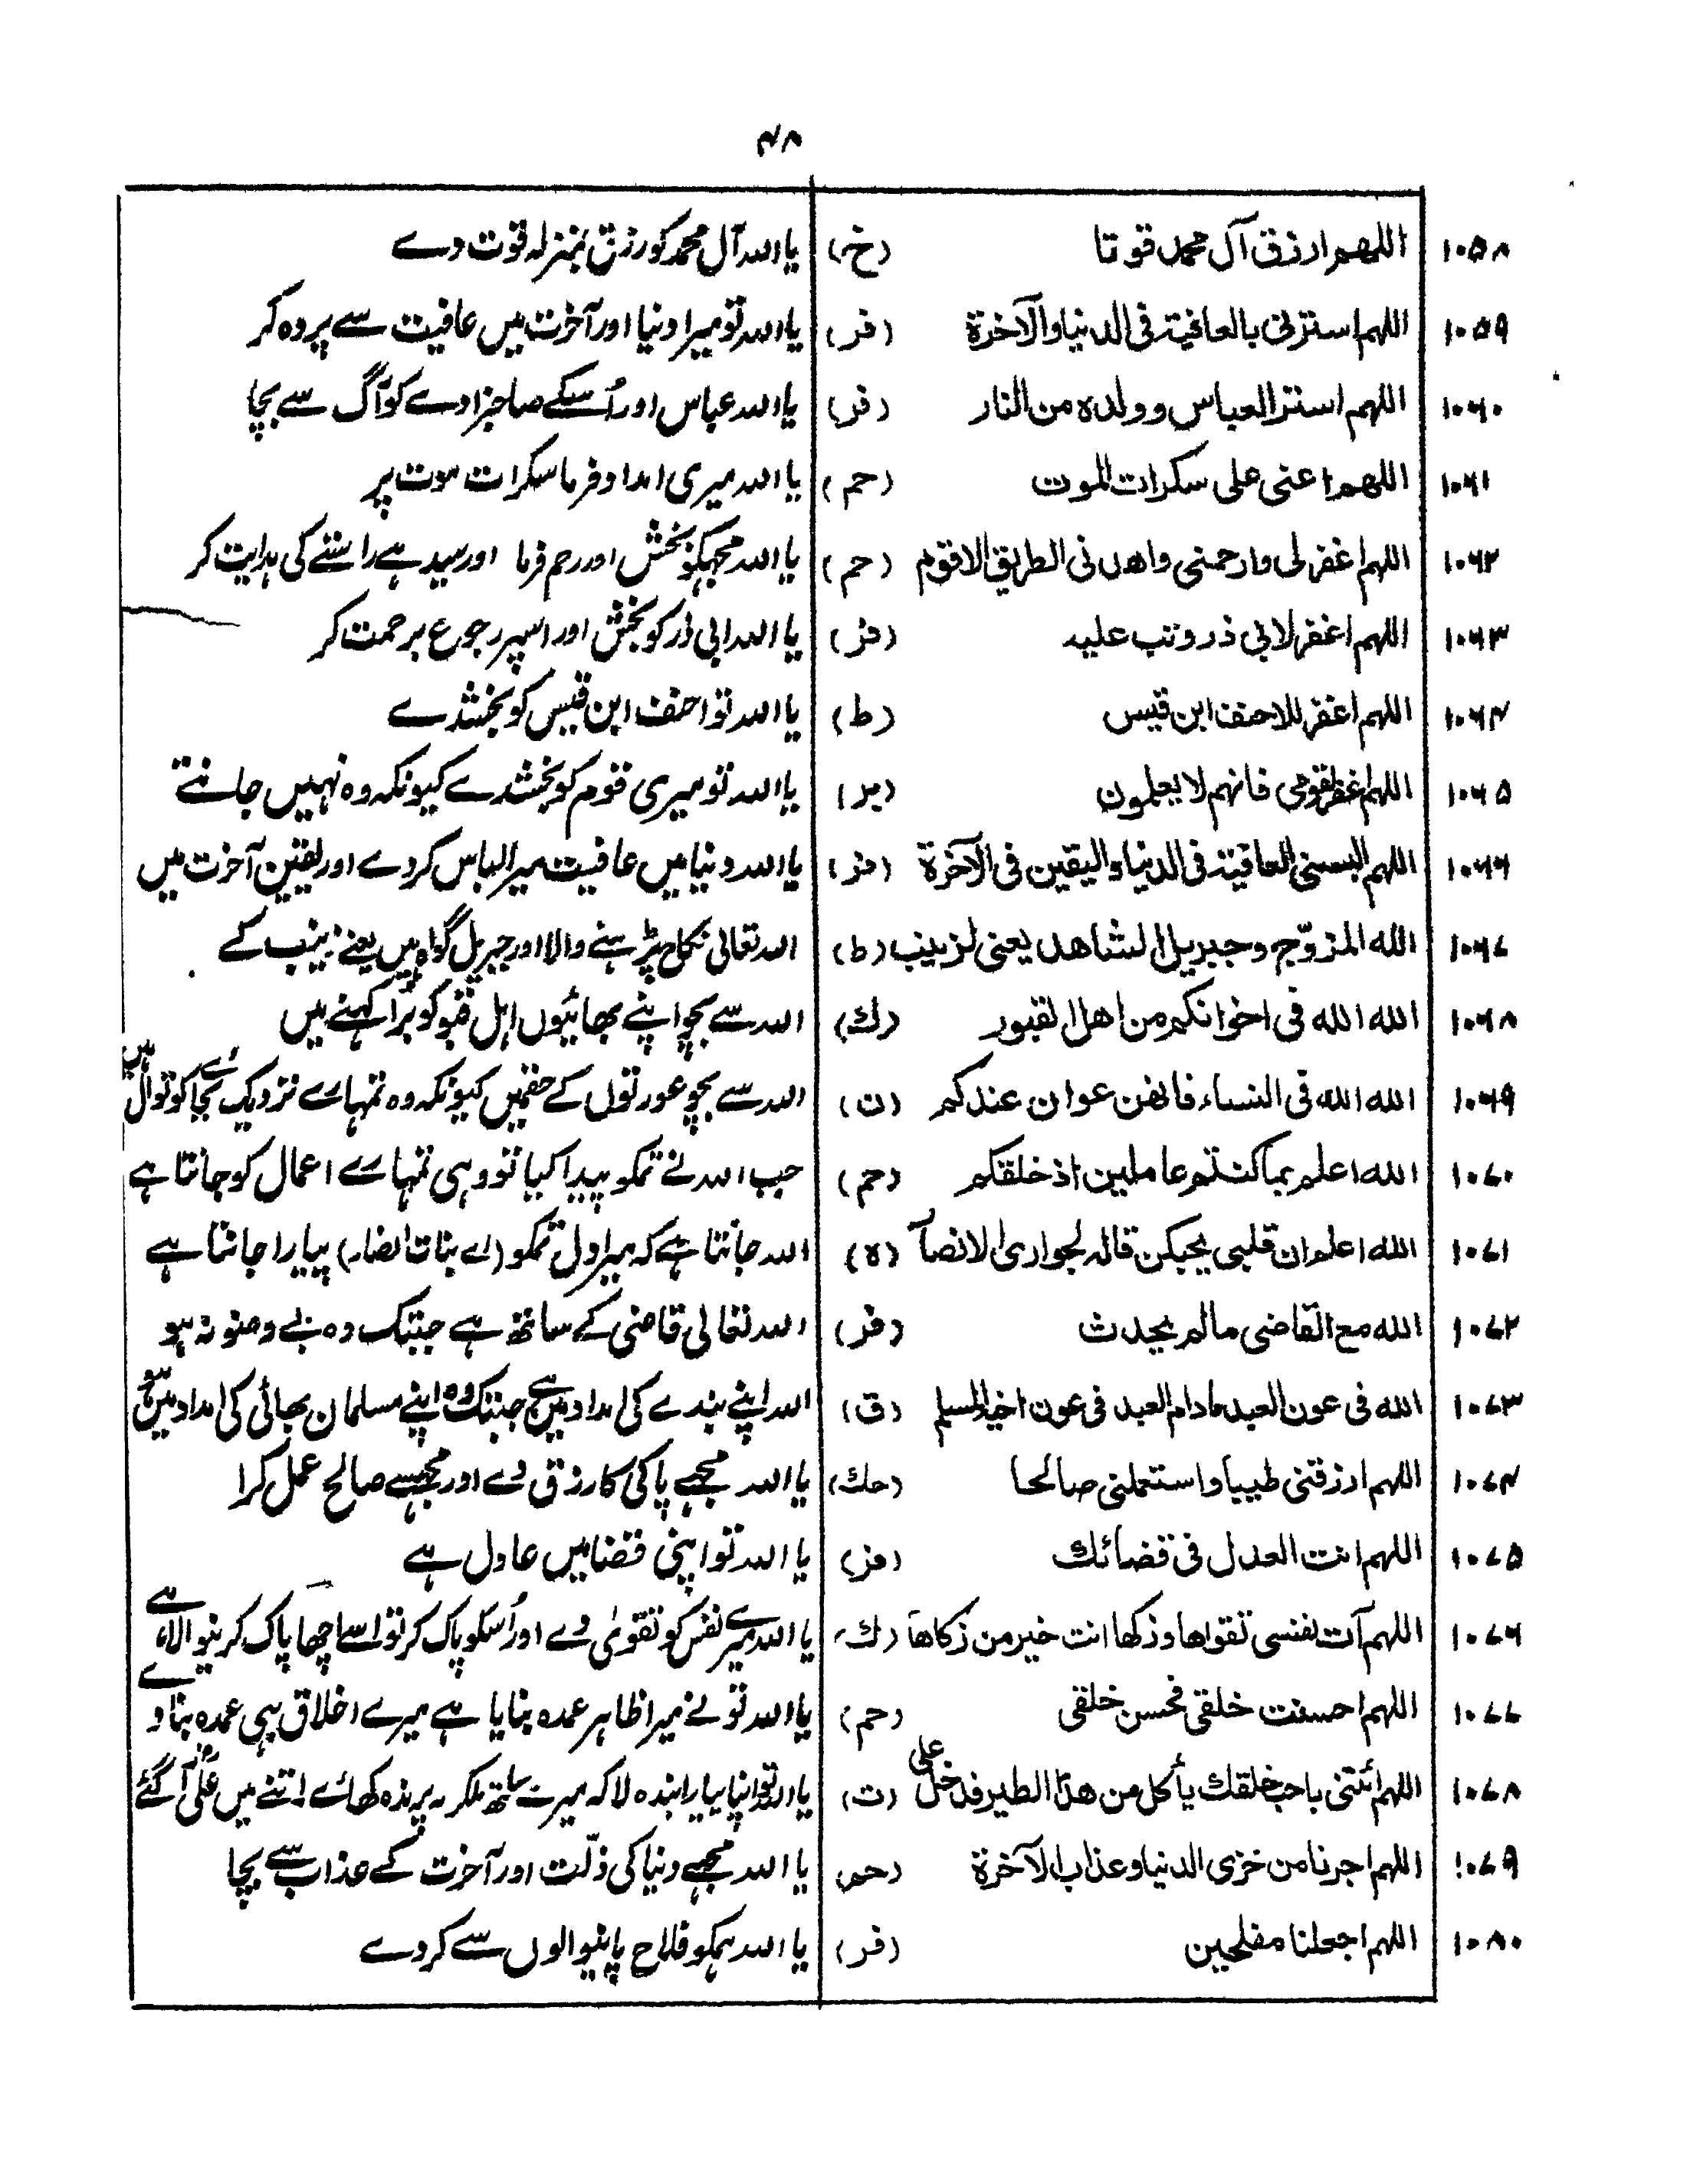 ۴۸
۱۰۵۸ اللهم ارزق آل محمد قوتا (خ) یا اللہ آل محمد کو رزق بمنزلہ قوت دے
۱۰۵۹ اللهم استرنی بالعافیة فی الدنیا والآخرة (فر) یا اللہ تو میرا دنیا اور آخرت میں عافیت سے پردہ کر
۱۰۶۰ اللهم استر العباس وولده من النار (فر) یا اللہ عباس اور اُسکے صاحبزادے کو آگ سے بچا
۱۰۶۱ اللهم اعنی علی سکرات الموت (حم) یا اللہ میری امداد فرما سکرات موت پر
۱۰۶۲ اللهم اغفر لی وارحمنی واهدنی الطریق الاقوم (حم) یا اللہ مجہکو بخش اور رحم فرما اور سیدہے راستے کی ہدایت کر
۱۰۶۳ اللهم اغفر لابی ذر وتب علیه (فر) یا اللہ ابی ذر کو بخش اور اسپر رجوع برحمت کر
۱۰۶۴ اللهم اغفر للاحنف ابن قیس (ط) یا اللہ تو احنف ابن قیس کو بخشدے
۱۰۶۵ اللهم اغفر لقومی فانهم لا یعلمون (بر) یا اللہ تو میری قوم کو بخشدے کیونکہ وہ نہیں جانتے
۱۰۶۶ اللهم البسنی العافیة فی الدنیا والیقین فی الآخرة (فر) یا اللہ دنیا میں عافیت میرا لباس کردے اور یقین آخرت میں
۱۰۶۷ الله المزوّج وجبریل الشاهد یعنی لزینب (ط) اللہ تعالی نکاح پڑہنے والا اور جبریل گواہ ہیں یعنے زینب کے
۱۰۶۸ الله الله فی اخوانکم من اهل القبور (ك) اللہ سے بچو اپنے بھائیوں اہل قبو کو بُرا کہنے میں
۱۰۶۹ الله الله فی النساء فانهن عوان عندکم (ن) اللہ سے بچو عورتوں کے حقمیں کیونکہ وہ تمہارے نزدیک
۱۰۷۰ الله اعلم بما کنتم عاملین اذ خلقکم (حم) جب اللہ نے تمکو پیدا کیا تو وہی تمہارے اعمال کو جانتا ہے
۱۰۷۱ الله اعلم ان قلبی یحبکن قاله لجواری الانصا (ه) اللہ جانتا ہے کہ میرا دل تمکو (اے بنات انصار) پیارا جانتا ہے
۱۰۷۲ الله مع القاضی ما لم یحدث (فر) اللہ تعالی قاضی کے ساتھ ہے جبتک وہ بے وضو نہ ہو
۱۰۷۳ الله فی عون العبد مادام العبد فی عون اخیه المسلم (ق) اللہ اپنے بندے کی امداد میں ہے جبتک وہ اپنے مسلمان بھائی کی امداد میں ہو
۱۰۷۴ اللهم ارزقنی طیبا واستعملنی صالحا (حك) یا اللہ مجہے پاکی کا رزق دے اور مجہسے صالح عمل کرا
۱۰۷۵ اللهم انت العدل فی قضائك (فر) یا اللہ تو اپنی قضا میں عادل ہے
۱۰۷۶ اللهم آت نفسی تقواها وزکها انت خیر من زکاها (ك) یا اللہ میرے نفس کو تقویٰ دے اور اُسکو پاک کر تو اسا چھا پاک کرنیوالا ہے
۱۰۷۷ اللهم احسنت خلقی فحسن خلقی (حم) یا اللہ تو نے میرا ظاہر عمدہ بنایا ہے میرے اخلاق بہی عمدہ بنا دے
۱۰۷۸ اللهم ائتنی باحب خلقك یأکل من هذا الطیر فدخل علی (ت) یا اللہ تو اپنا پیارا بندہ لا کہ میرے ساتھ ملکر یہ پرندہ کھائے اتنے میں علی آ گئے
۱۰۷۹ اللهم اجرنا من خزی الدنیا وعذاب الآخرة (حم) یا اللہ مجہے دنیا کی ذلّت اور آخرت کے عذاب سے بچا
۱۰۸۰ اللهم اجعلنا مفلحین (فر) یا اللہ ہمکو فلاح پانیوالوں سے کردے